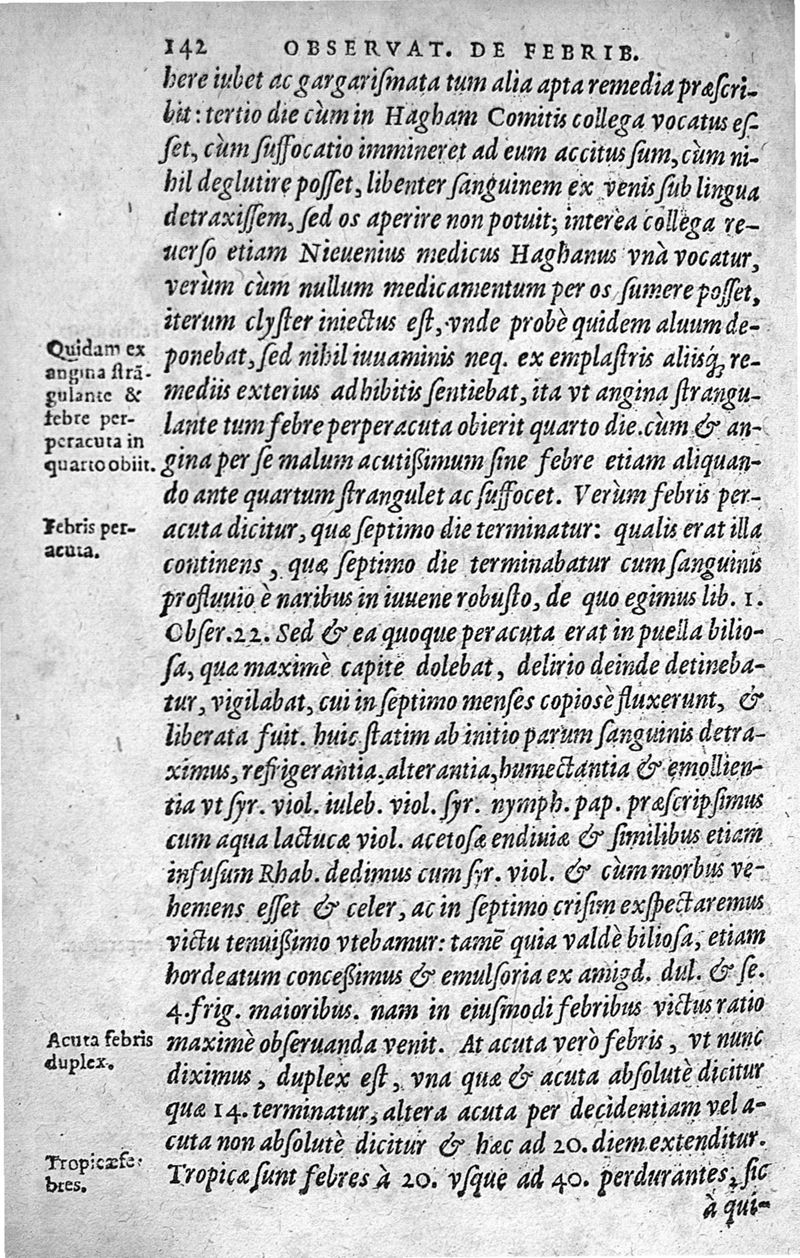 142 OBSERVAT. DE FEBRIB.
here iubet ac gargariſmata tum alia apta remedia præſcri-
bit: tertio die cùm in Hagham Comitis collega vocatus eſ-
ſet, cùm ſuffocatio immineret ad eum accitus ſum, cùm ni-
hil deglutire poſſet, libenter ſanguinem ex venis ſub lingua
detraxiſſem, ſed os aperire non potuit; interea collega re-
uerſo etiam Nieuenius medicus Haghanus vnà vocatur,
verùm cùm nullum medicamentum per os ſumere poſſet,
iterum clyſter iniectus eſt, vnde probè quidem aluum de-
Quidam ex
angina ſtrā-
gulante &
febre per-
peracuta in
quarto obiit.
ponebat, ſed nihil iuuaminis neq. ex emplaſtris aliisq́; re-
mediis exterius adhibitis ſentiebat, ita vt angina ſtrangu-
lante tum febre perperacuta obierit quarto die. cùm & an-
gina per ſe malum acutißimum ſine febre etiam aliquan-
do ante quartum ſtrangulet ac ſuffocet. Verùm febris per-
Febris per-
acuta.
acuta dicitur, quæ ſeptimo die terminatur: qualis erat illa
continens, quæ ſeptimo die terminabatur cum ſanguinis
profluuio è naribus in iuuene robuſto, de quo egimus lib. 1.
Obſer. 22. Sed & ea quoque peracuta erat in puella bilio-
ſa, quæ maximè capite dolebat, delirio deinde detineba-
tur, vigilabat, cui in ſeptimo menſes copiosè fluxerunt, &
liberata fuit. huic ſtatim ab initio parum ſanguinis detra-
ximus, refrigerantia, alterantia, humectantia & emollien-
tia vt ſyr. viol. iuleb. viol. ſyr. nymph. pap. præſcripſimus
cum aqua lactucæ viol. acetoſæ endiuiæ & ſimilibus etiam
infuſum Rhab. dedimus cum ſyr. viol. & cùm morbus ve-
hemens eſſet & celer, ac in ſeptimo criſim exſpectaremus
victu tenuißimo vtebamur: tamē quia valdè bilioſa, etiam
hordeatum conceßimus & emulſoria ex amigd. dul. & ſe.
4. frig. maioribus. nam in eiuſmodi febribus victus ratio
Acuta febris
duplex.
maximè obſeruanda venit. At acuta verò febris, vt nunc
diximus, duplex eſt, vna quæ & acuta abſolutè dicitur
quæ 14. terminatur, altera acuta per decidentiam vel a-
cuta non abſolutè dicitur & hæc ad 20. diem extenditur.
Tropicæ fe-
bres.
Tropicæ ſunt febres à 20. vſque ad 40. perdurantes, ſic
à qui-